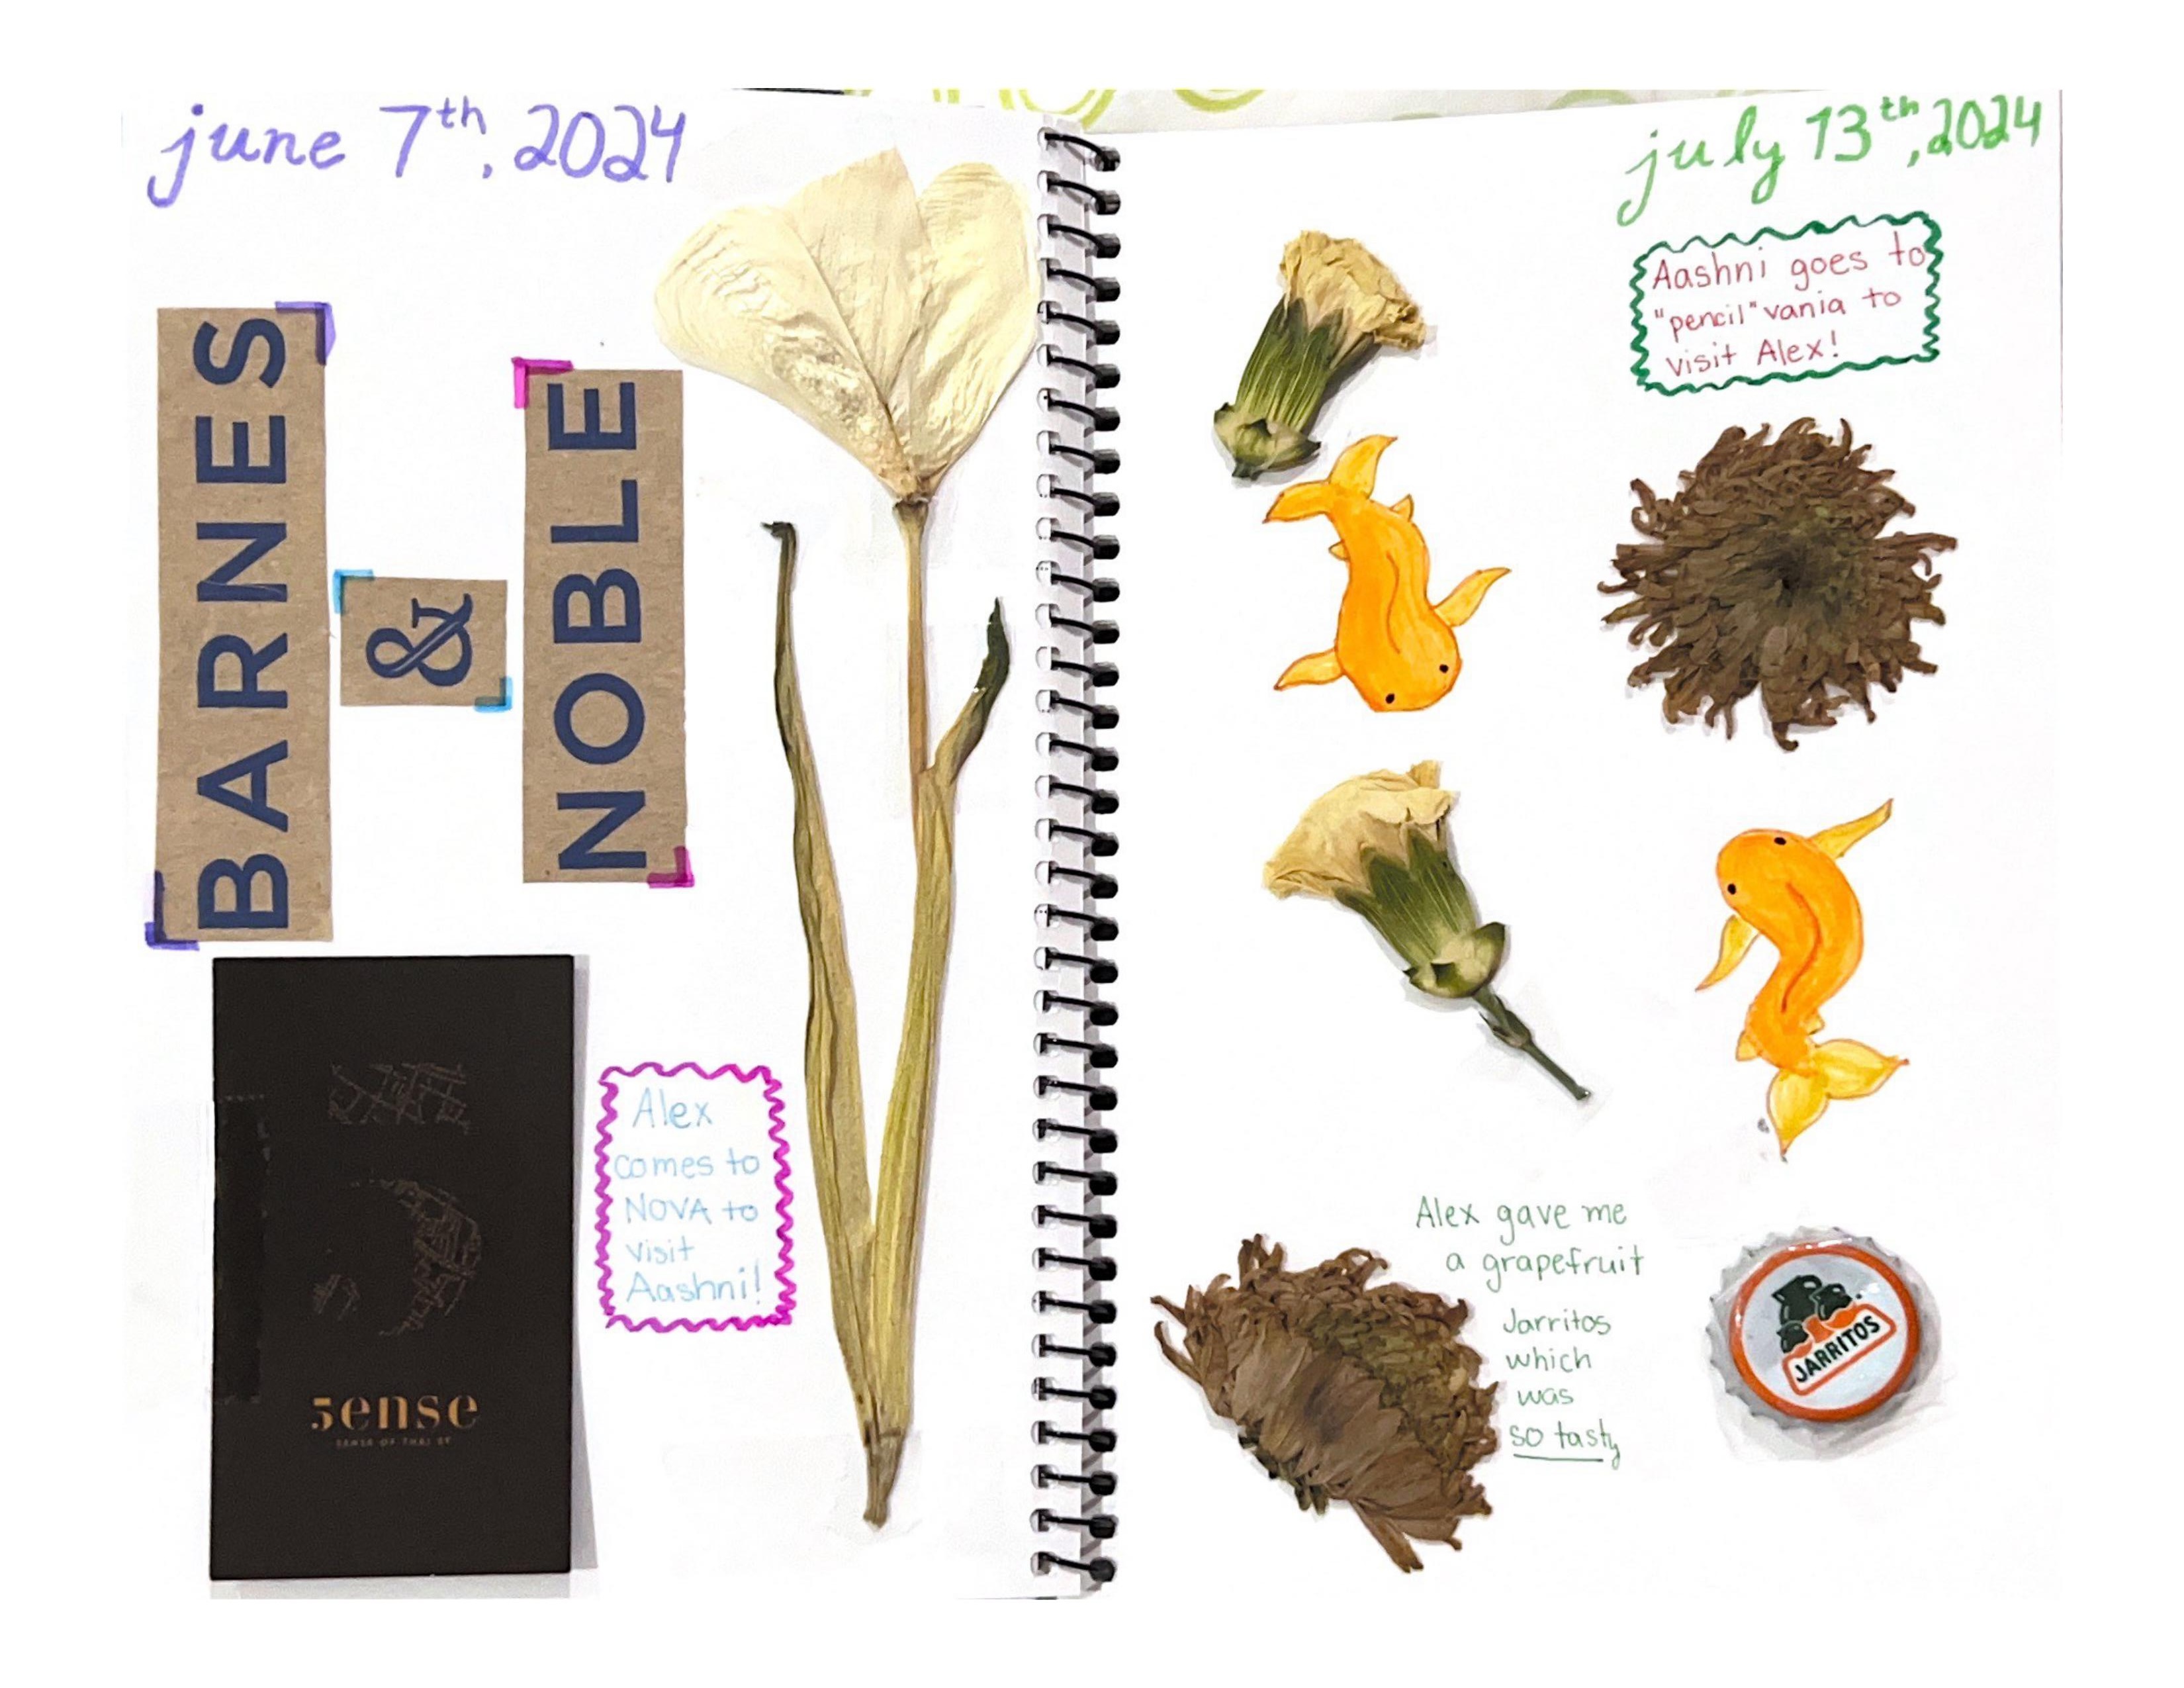 june 7th, 2024
BARNES
&
NOBLE
5ense
SENSE OF THAI ST
Alex
comes to
NOVA to
visit
Aashni!
july 13th, 2024
Aashni goes to
"pencil"vania to
visit Alex!
Alex gave me
a grapefruit
Jarritos
which
was
so tasty
JARRITOS